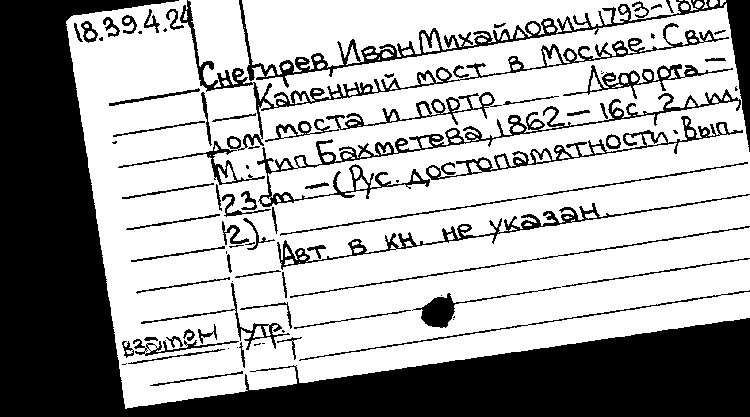 18.39.4.24
Снегирев, Иван Михайлович, 1793-1868
Каменный мост в Москве: С ви-
дом моста и портр. Лефорта. -
М.: тип Бахметева, 1862. - 16с., 2 л.ил;
23 см. - (Рус. достопамятности; Вып.
2).
Авт. в кн. не указан.
взамен утр